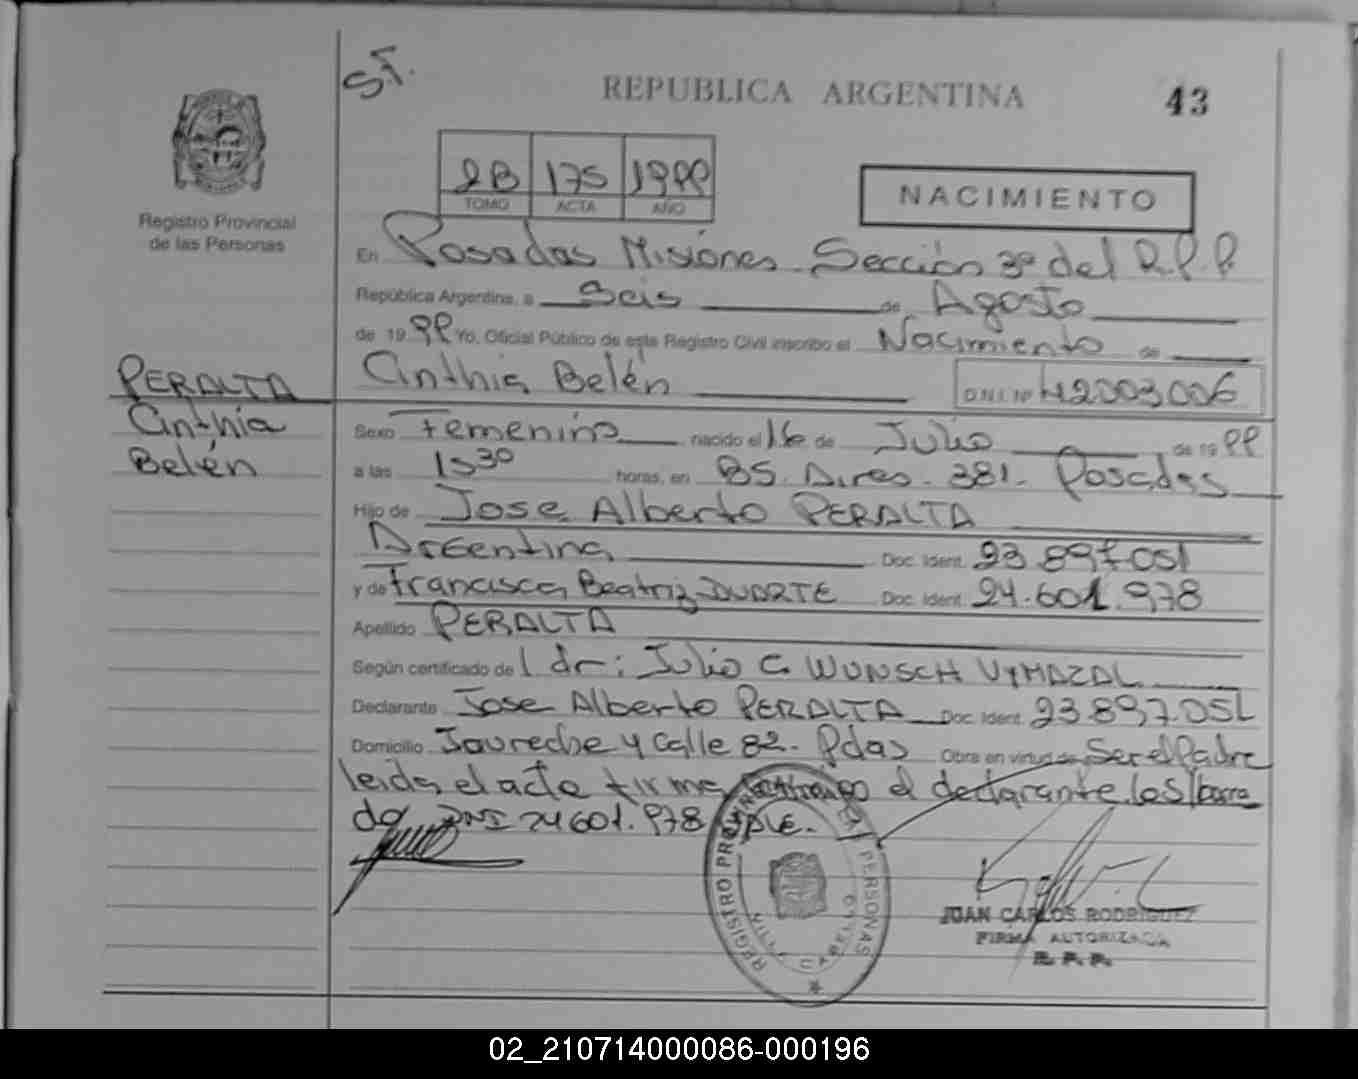 S.F.
REPUBLICA ARGENTINA
43
2B 175 1999
TOMO ACTA AÑO
NACIMIENTO
Registro Provincial
de las Personas
En Posadas Misiones. Sección 3º del R.P.P.
República Argentina, a Seis de Agosto
de 1999 Yo, Oficial Público de este Registro Civil inscribo el Nacimiento de
Cinthia Belén D.N.I. Nº 42003006
PERALTA
Cinthia
Belén
Sexo Femenino nacido el 16 de Julio de 1999
a las 1530 horas, en BS. Aires. 381. Posadas
Hijo de Jose Alberto PERALTA
Argentina Doc. Ident. 23.897.051
y de Francisca Beatriz DUARTE Doc. Ident. 24.601.978
Apellido PERALTA
Según certificado de l dr: Julio C. WUNSCH VYMAZAL
Declarante Jose Alberto PERALTA Doc. Ident. 23.897.051
Domicilio Jaureche y Calle 82. Pdas Obra en virtud de Ser el Padre
leida el acta firma conmigo el declarante. lo S/borra
do DNI 24601.978 VALE.
REGISTRO PROVINCIAL PERSONAS
JUAN CARLOS RODRIGUEZ
FIRMA AUTORIZADA
R. P. P.
02_210714000086-000196